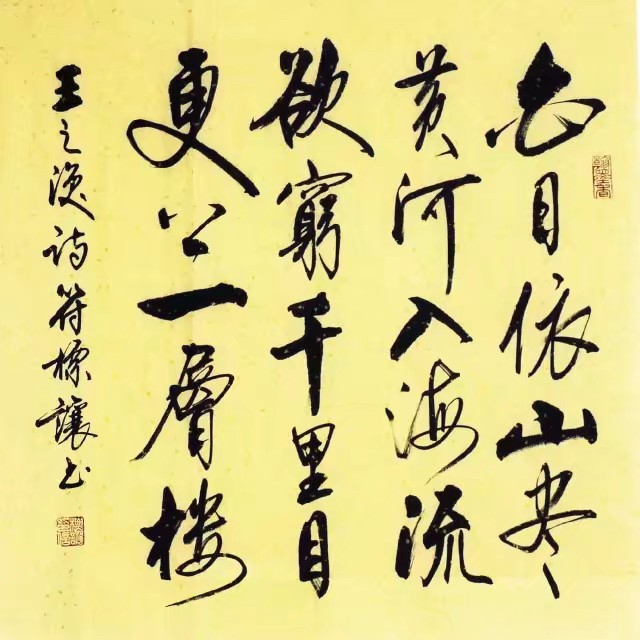 白日依山尽
黄河入海流
欲窮千里目
更上一層楼
王之涣诗符標讓书